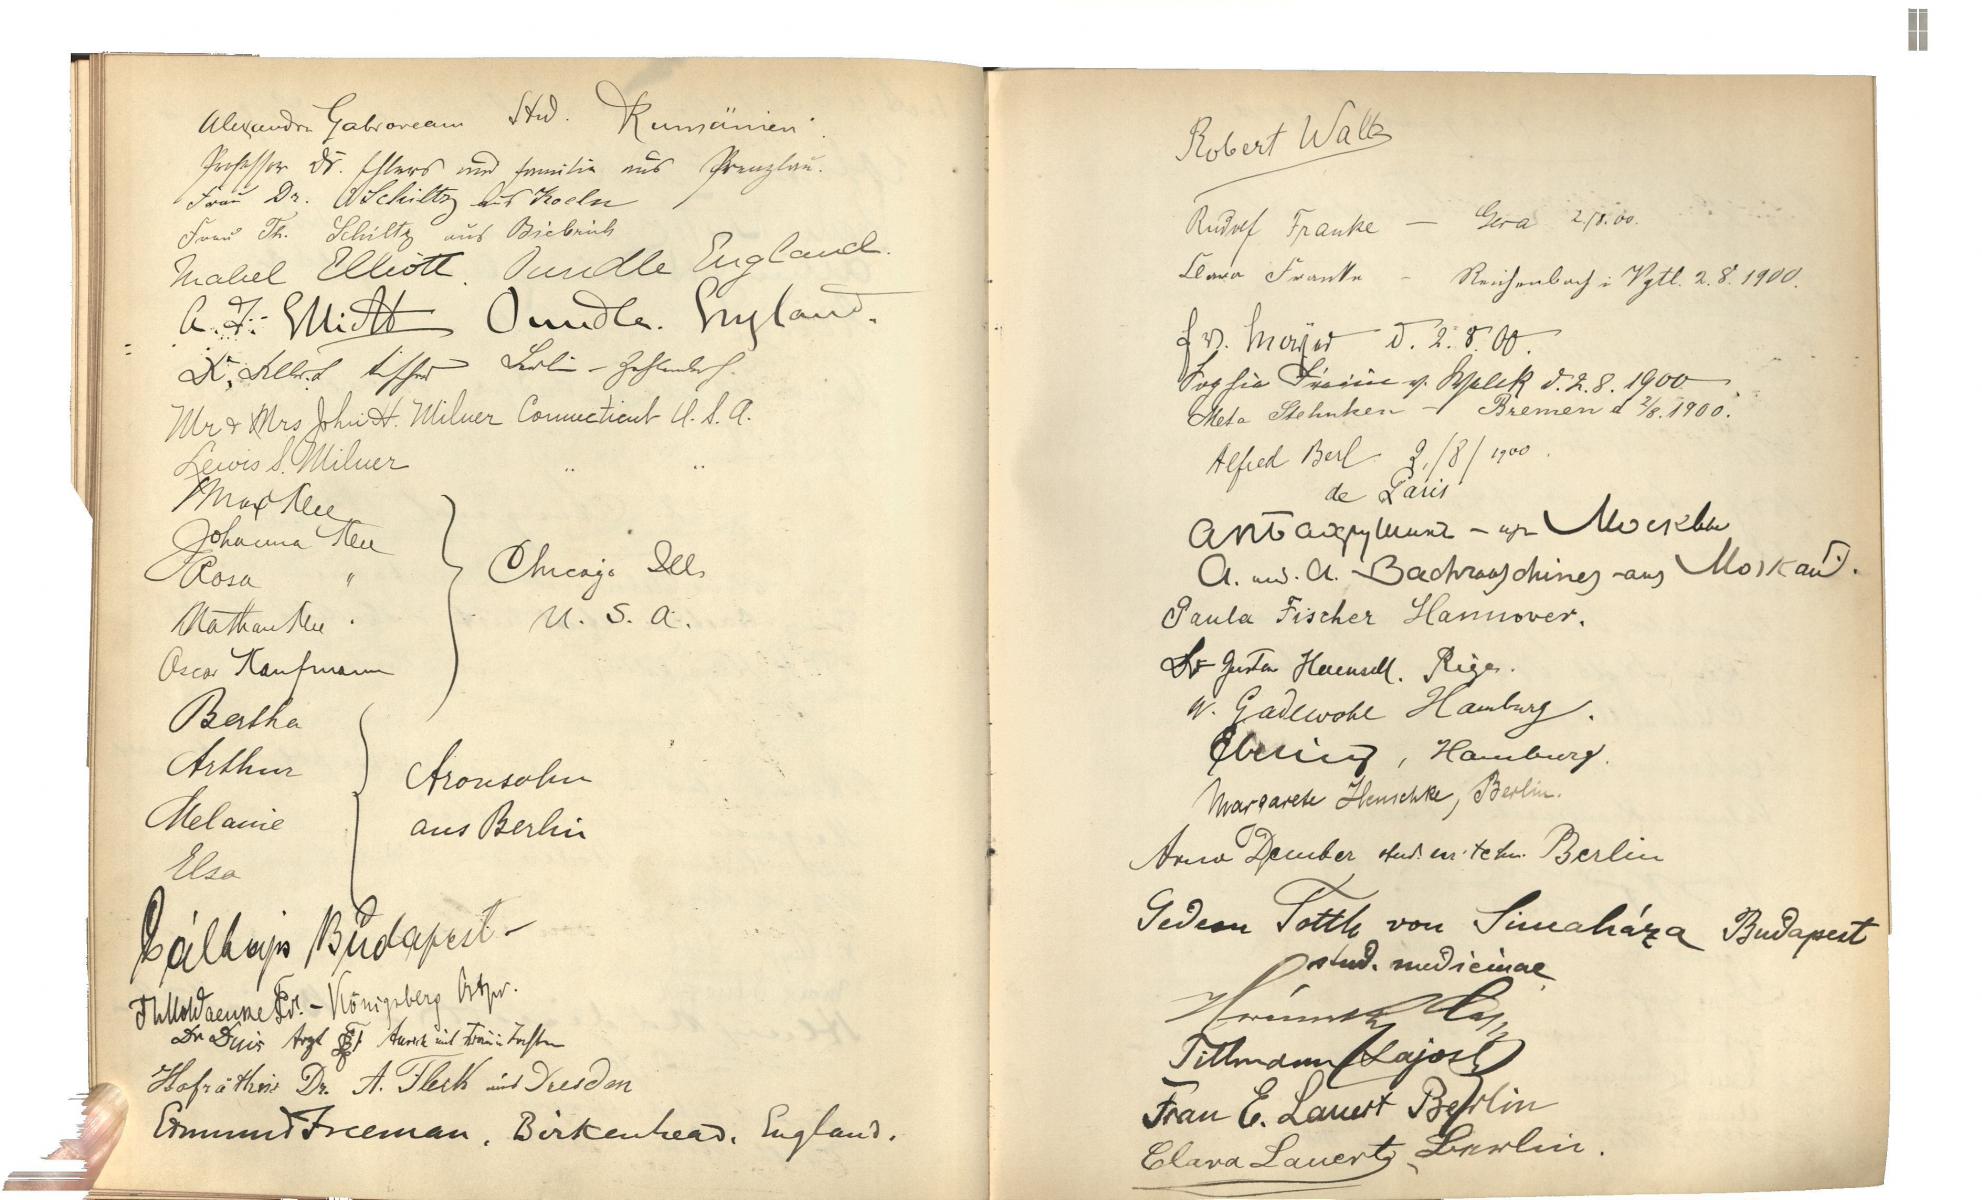 Alexandru Gabroveanu Stud. Rumänien.
Professor Dr. Ehlers und Familie aus Prenzlau.
Frau Dr. Schiltz aus Koeln
Frau Th. Schiltz aus Biebrich
Mabel Elliott. Oundle England.
A. F. Elliott Oundle. England.
Dr. Berlin - Zehlendorf.
Mr & Mrs John H. Milner Connecticut U. S. A.
Lewis S. Milner " "
Max Klee
Johanna Klee
Rosa "
Chicago Ills
Nathan Klee
U. S. A.
Oscar Kaufmann
Bertha
Arthur
Aronsohn
Melanie
aus Berlin
Elsa
Budapest -
Königsberg Ostpr.
Dr Arzt
Hofräthin Dr. A. Fleck aus Dresden
Edmund Freeman, Birkenhead, England.
Robert Walk
Rudolf Franke - Gera 2/8.00.
Clara Franke - Reichenbach i Vgtl. 2.8.1900.
v. d. 2.8.00.
Sophia v. d. 2.8.1900
Meta Stehnken - Bremen d 2/8.1900.
Alfred Berl 2/8/1900.
de Paris
Москвы
A. und. A. aus Moskau.
Paula Fischer Hannover.
Dr Gustav Riga.
W. Gadewohl Hamburg.
Hamburg.
Margarete Henschke, Berlin.
Arno Dember Berlin
Gedeon Totth von Simaháza Budapest
stud. medicinae
Tillmann Lajos
Frau E. Lauert Berlin
Clara Lauert, Berlin.